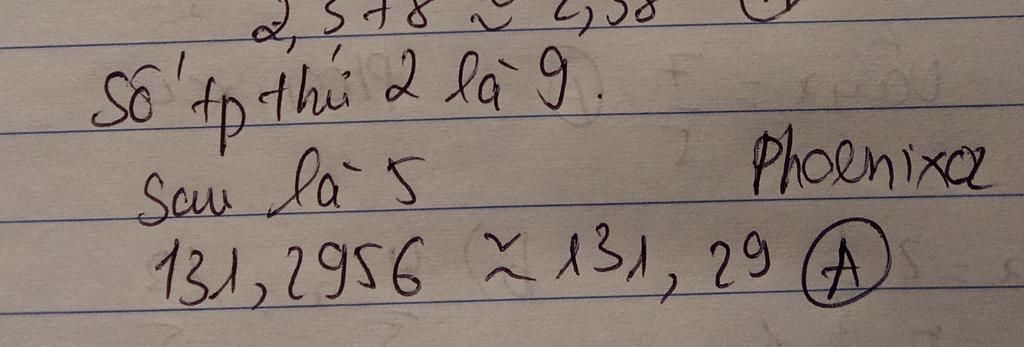 2,578 ≈ 2,58
Số tp thứ 2 là 9.
Sau là 5
Phoenixa
131,2956 ≈ 131,29 A